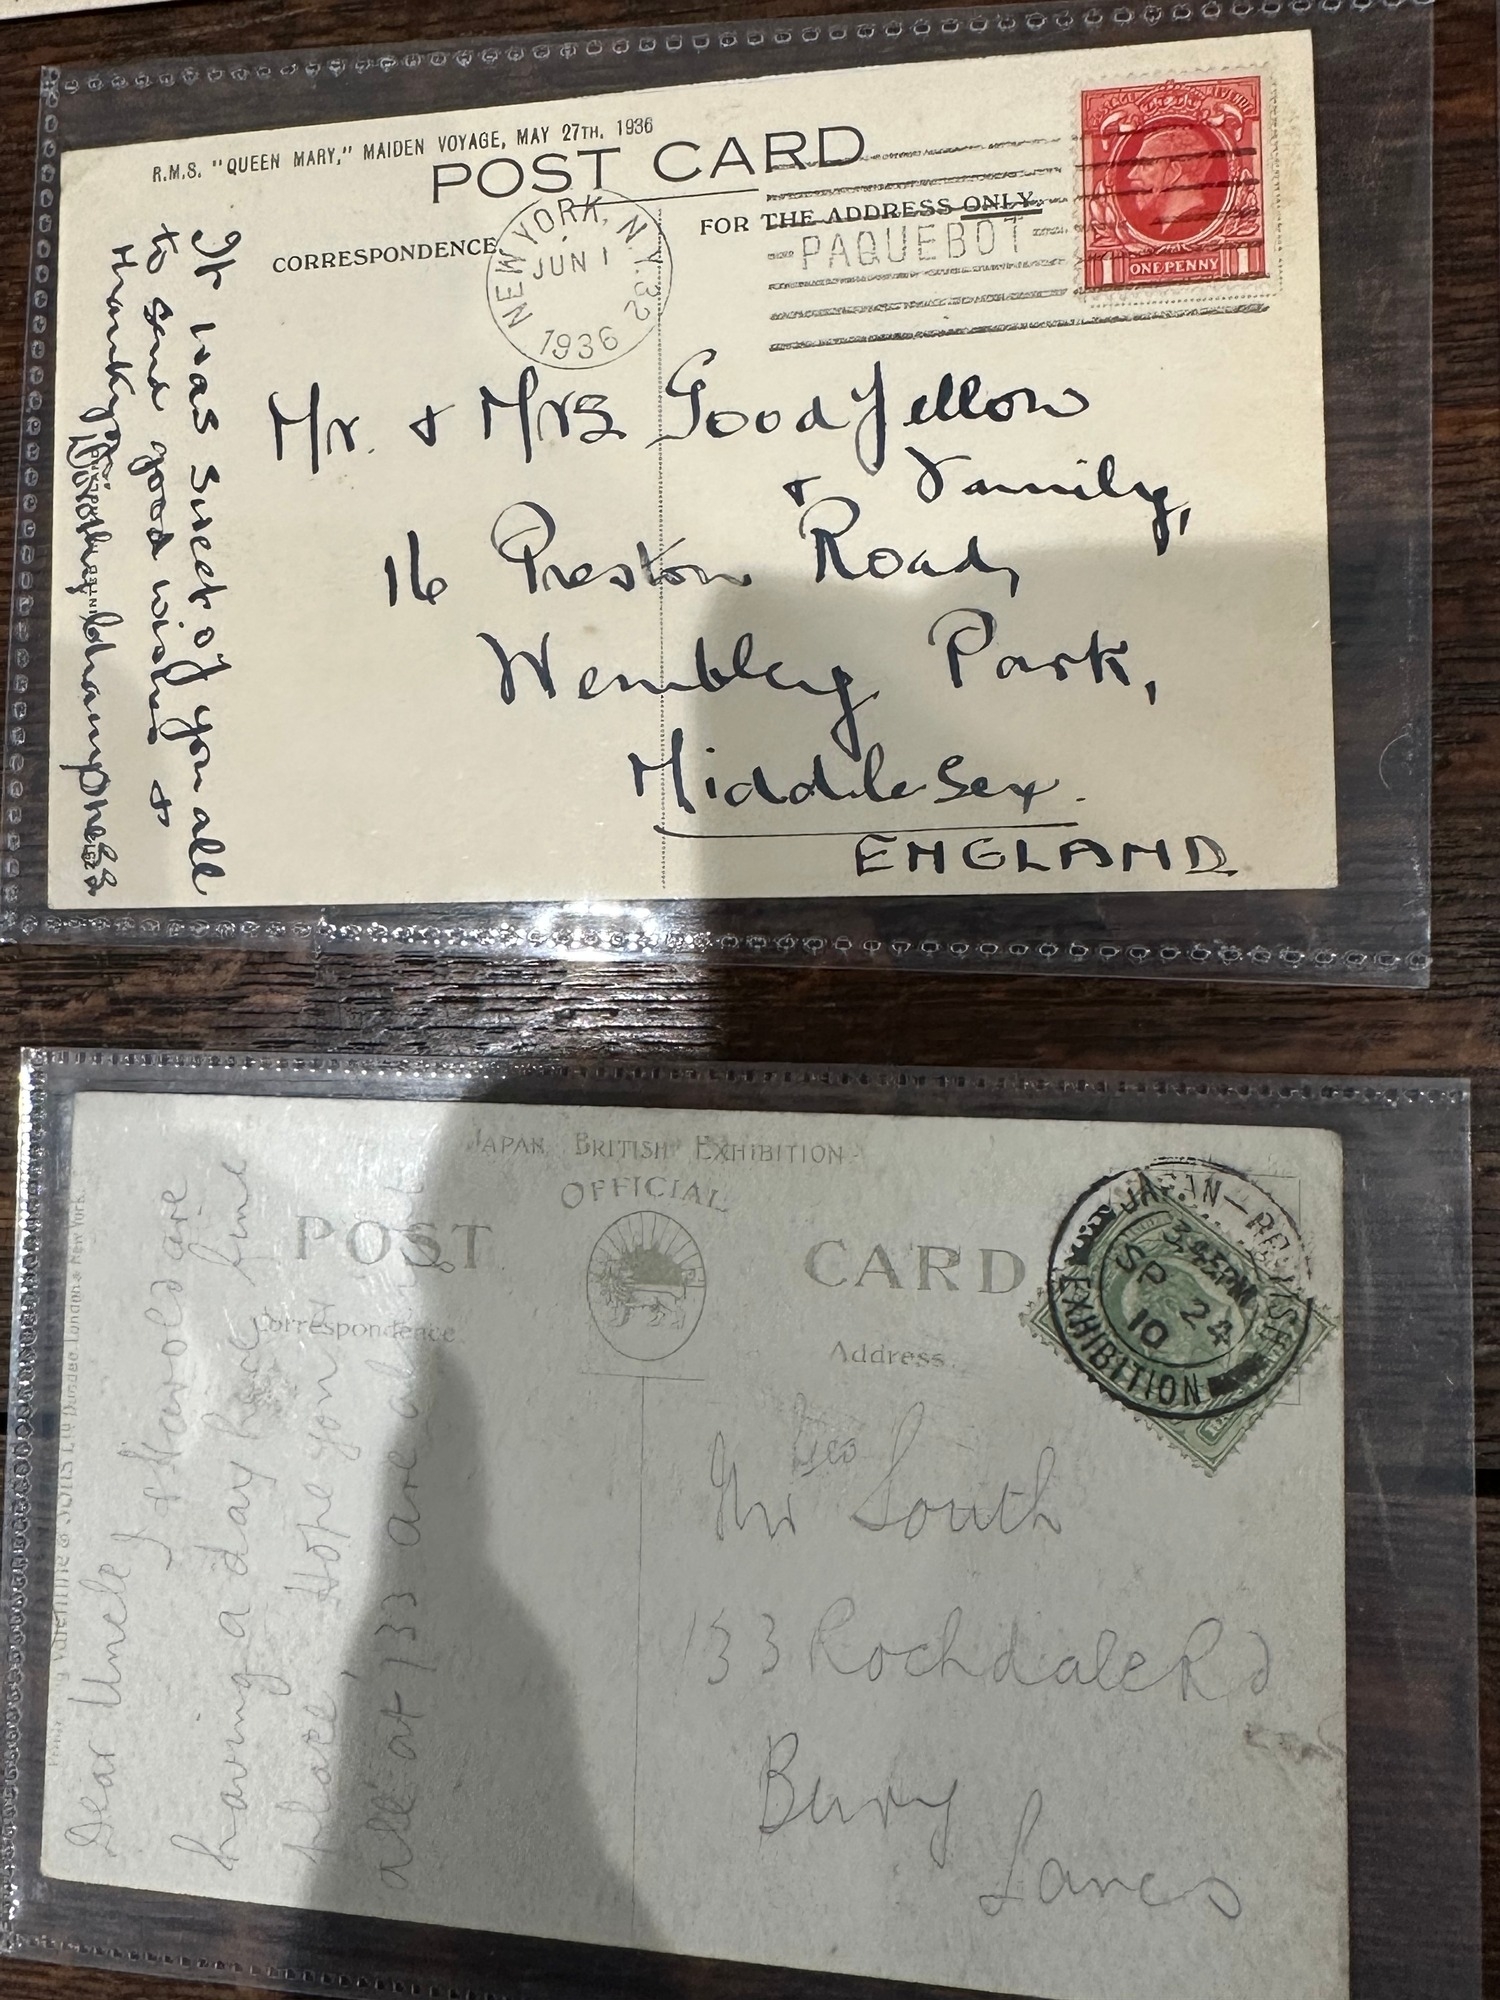 R.M.S. "QUEEN MARY," MAIDEN VOYAGE, MAY 27TH, 1936
POST CARD
CORRESPONDENCE
FOR THE ADDRESS ONLY.
NEW YORK, N.Y. 32
JUN 1
1936
PAQUEBOT
POSTAGE REVENUE
1 ONE PENNY 1
It was sweet of you all
to send good wishes +
Thank you.
Mr. & Mrs Goodfellow
+ Family,
16 Preston Road,
Wembley Park,
Middlesex.
ENGLAND
JAPAN BRITISH EXHIBITION
OFFICIAL
POST CARD
Correspondence
Address
JAPAN—BRITISH
EXHIBITION
PM
SP 24
10
Valentine & Sons Ltd Dundee London & New York.
Dear Uncle
I & Harold are
having a day here fine
place, Hope you
all at 133 are
Mr Geo South
133 Rochdale Rd
Bury
Lancs